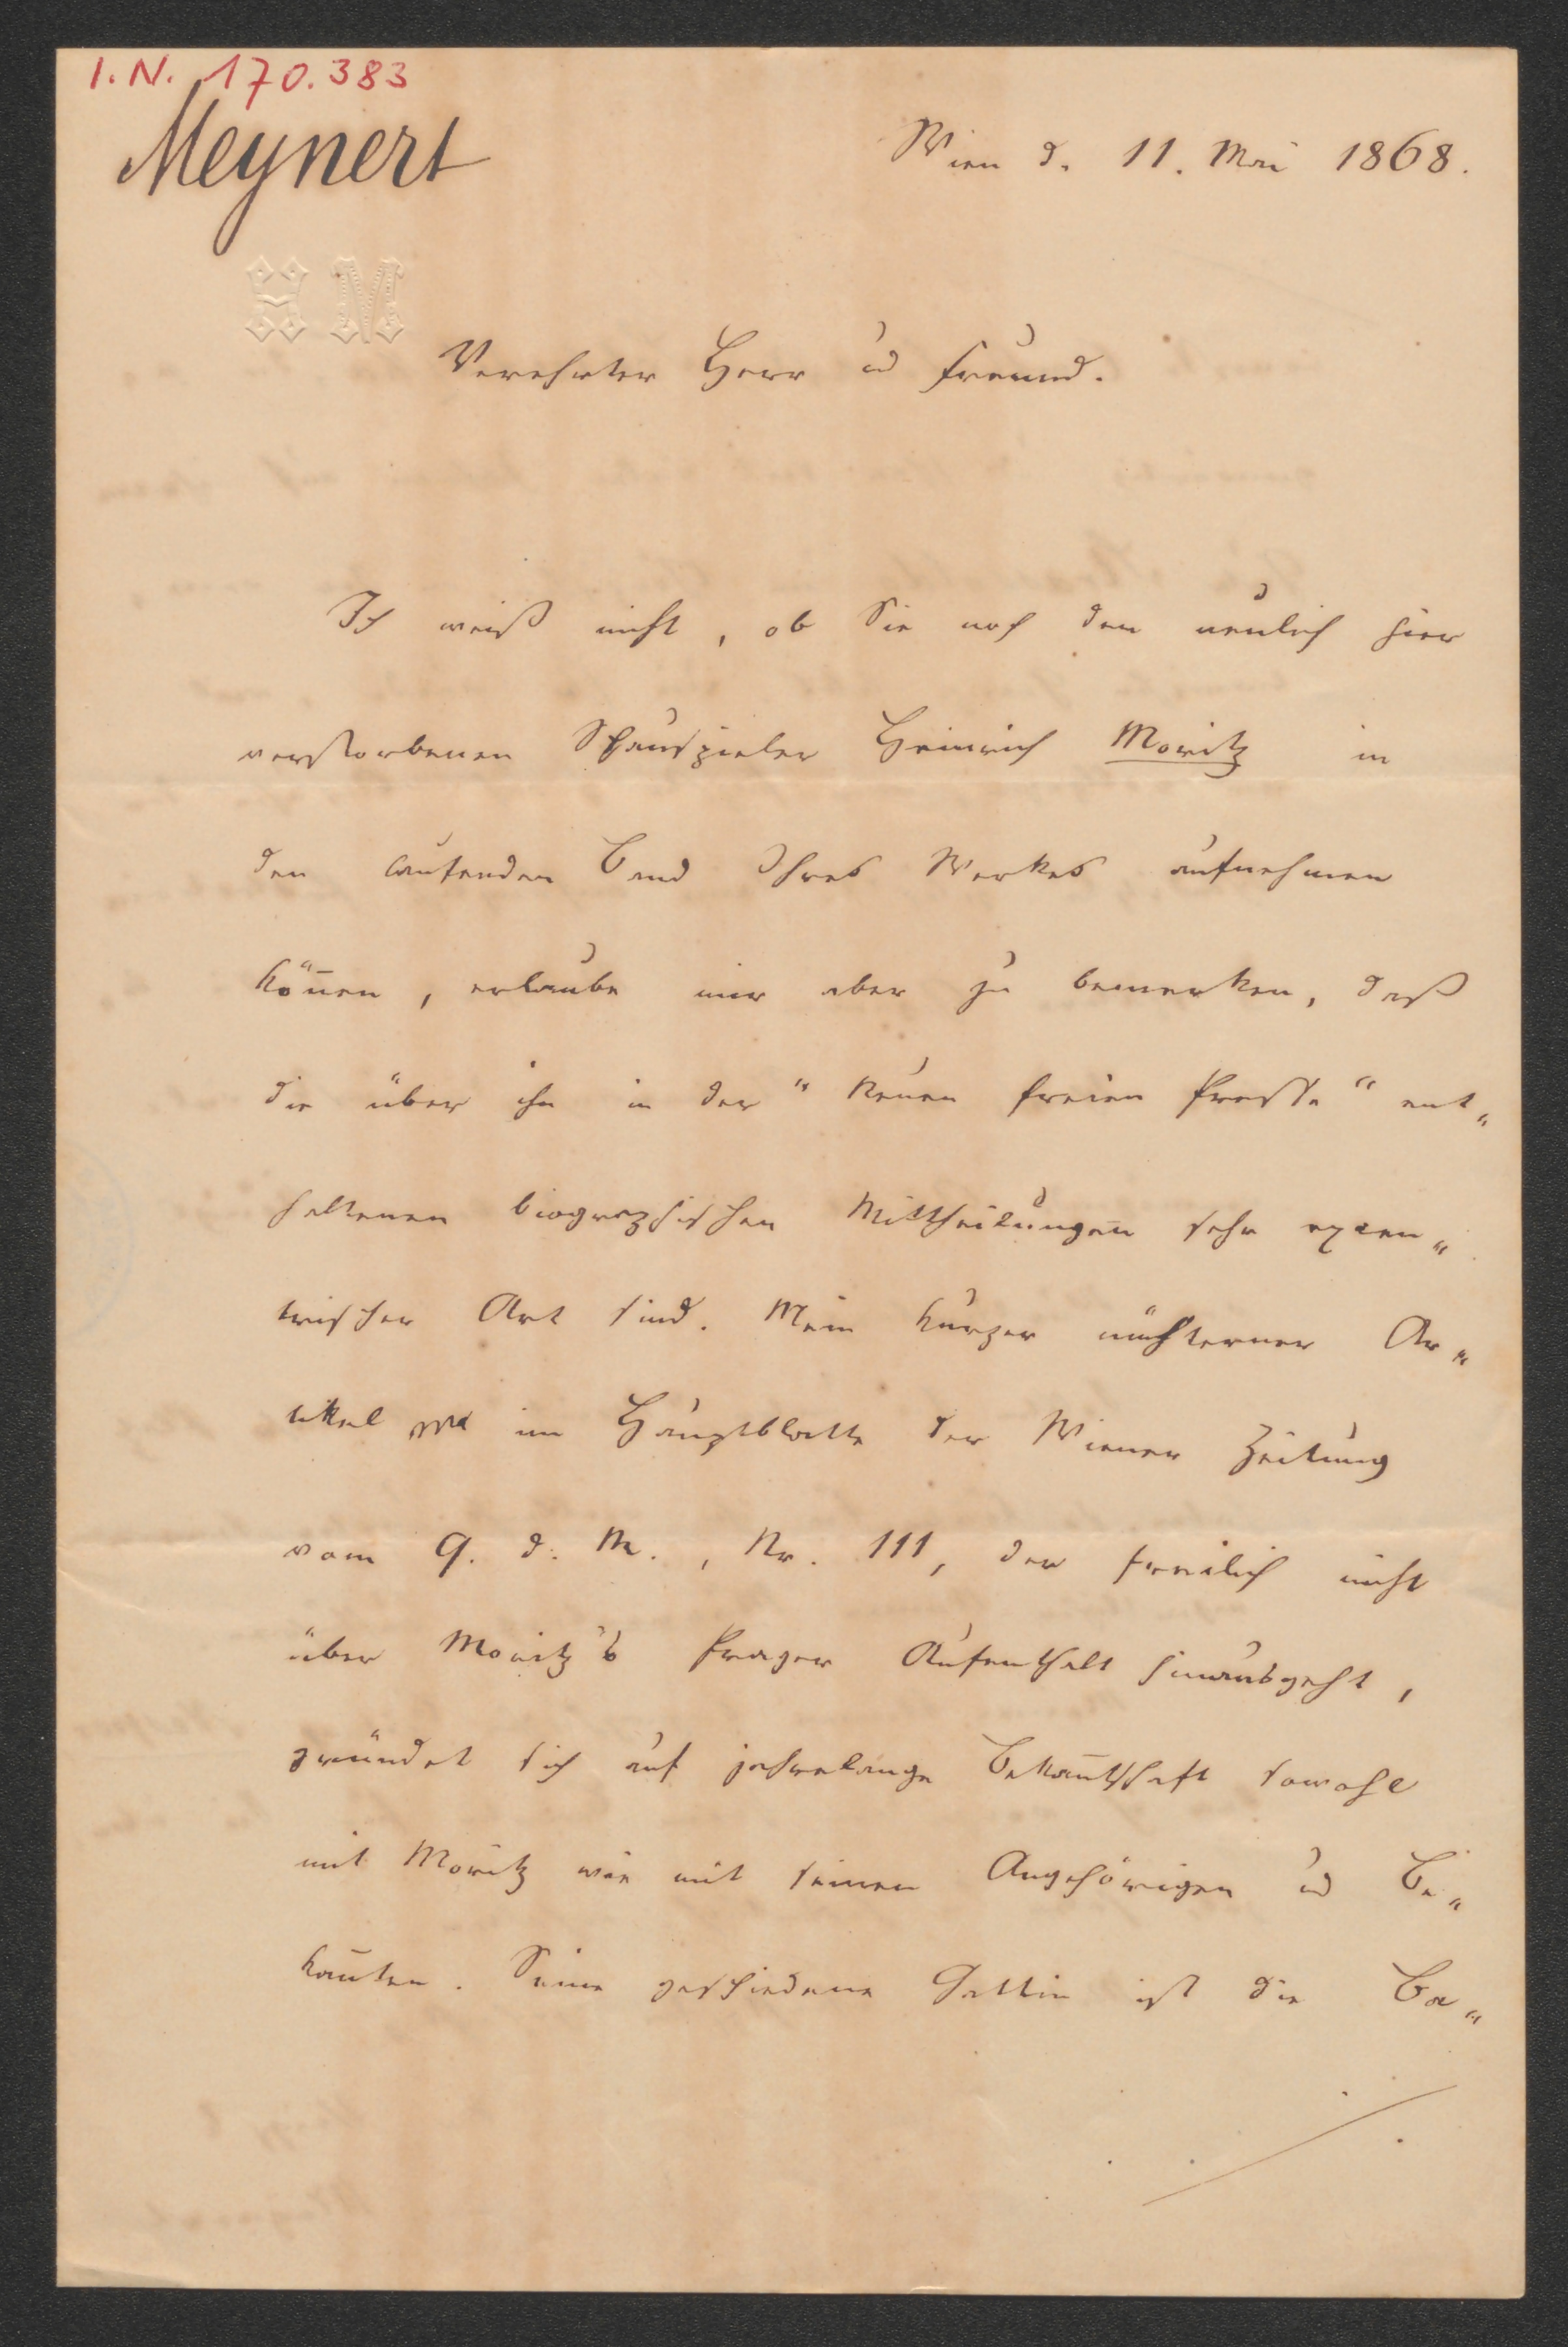 I. N. 170.383
Meynert
Wien d. 11. Mai 1868.
HM
Verehrter Herr ud Freund.
Ich weiß nicht, ob Sie noch den neulich hier
verstorbenen Schauspieler Heinrich Moritz in
den laufenden Band Ihres Werkes aufnehmen
kön̅en, erlaube mir aber zu bemerken, daß
die über ihn in der "Neuen freien Presse" ent„
haltenen biographischen Mittheilungen sehr excen„
trischer Art sind. Mein kurzer nüchterner Ar„
tikel im Hauptblatte der Wiener Zeitung
vom 9. d. M., Nr. 111, der freilich nicht
über Moritz's Prager Aufenthalt hinausgeht,
gründet sich auf jahrelange Bekan̅tschaft sowohl
mit Moritz wie mit seinen Angehörigen ud Be„
kan̅ten. Seine geschiedene Gattin ist die Ba„